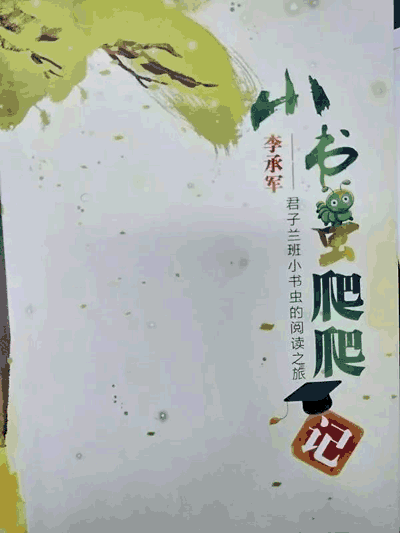 小书虫爬爬记
李承军
——君子兰班小书虫的阅读之旅